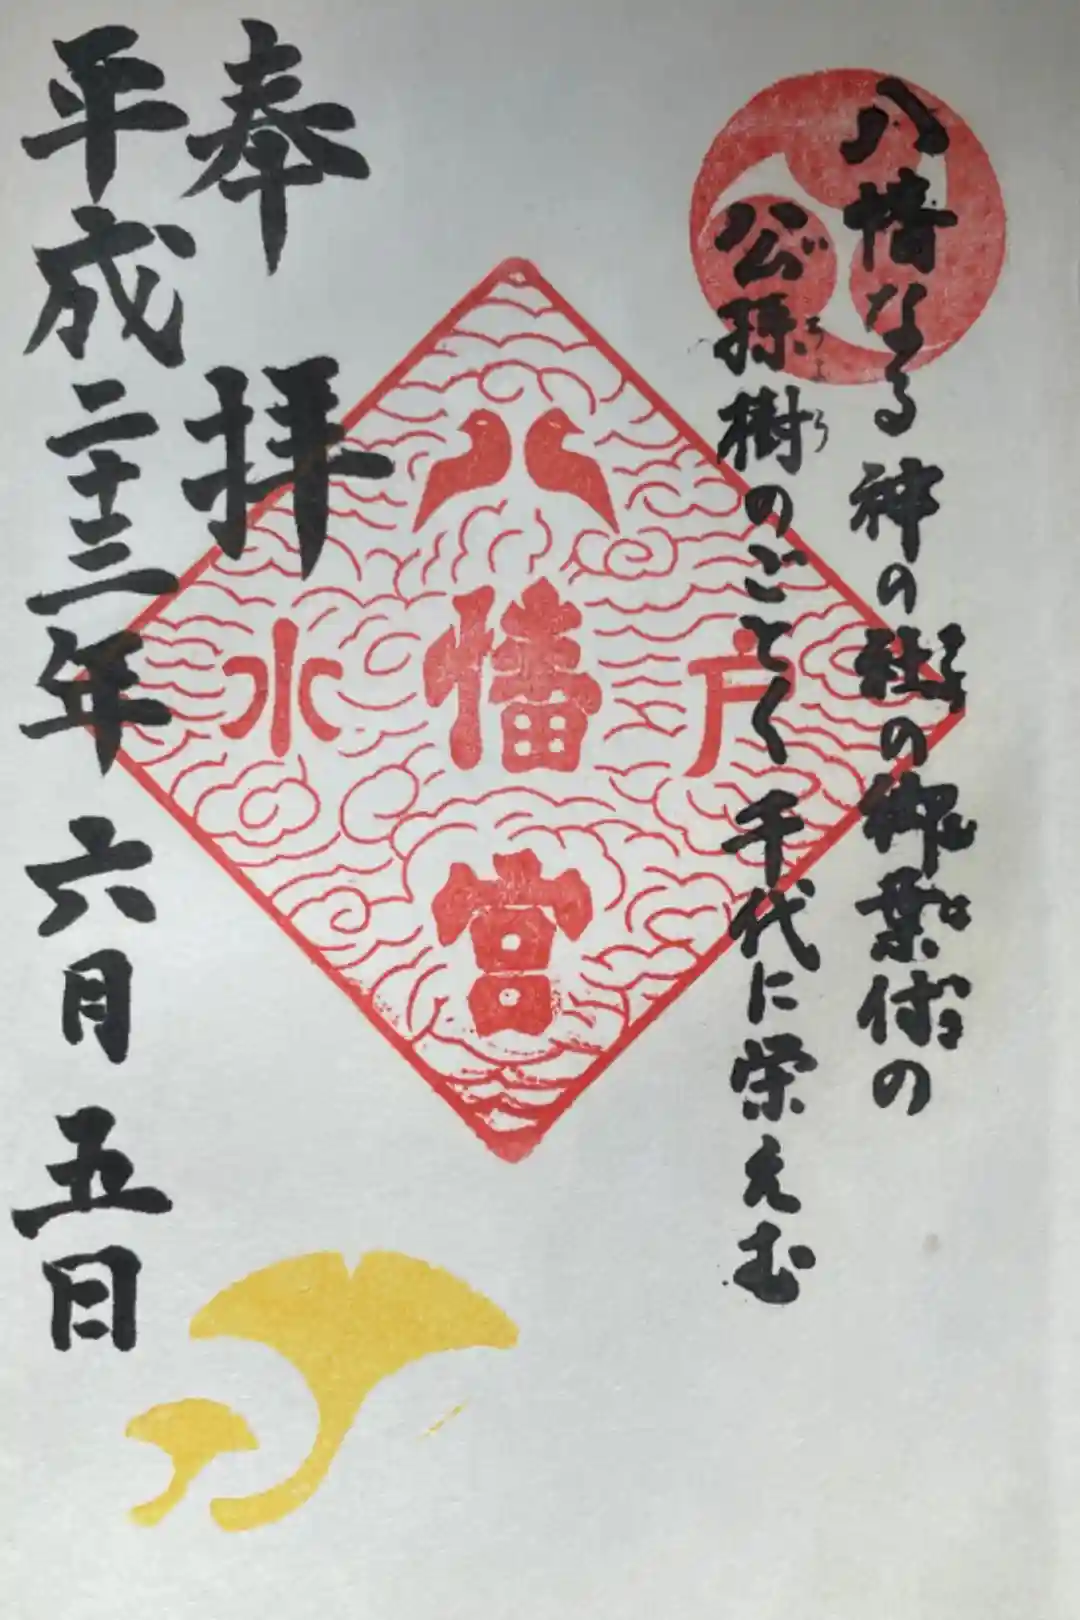 八幡なる神の社の御葉付の
公孫樹のごとく千代に栄えむ
水戸
八幡宮
奉拝
平成二十三年六月五日